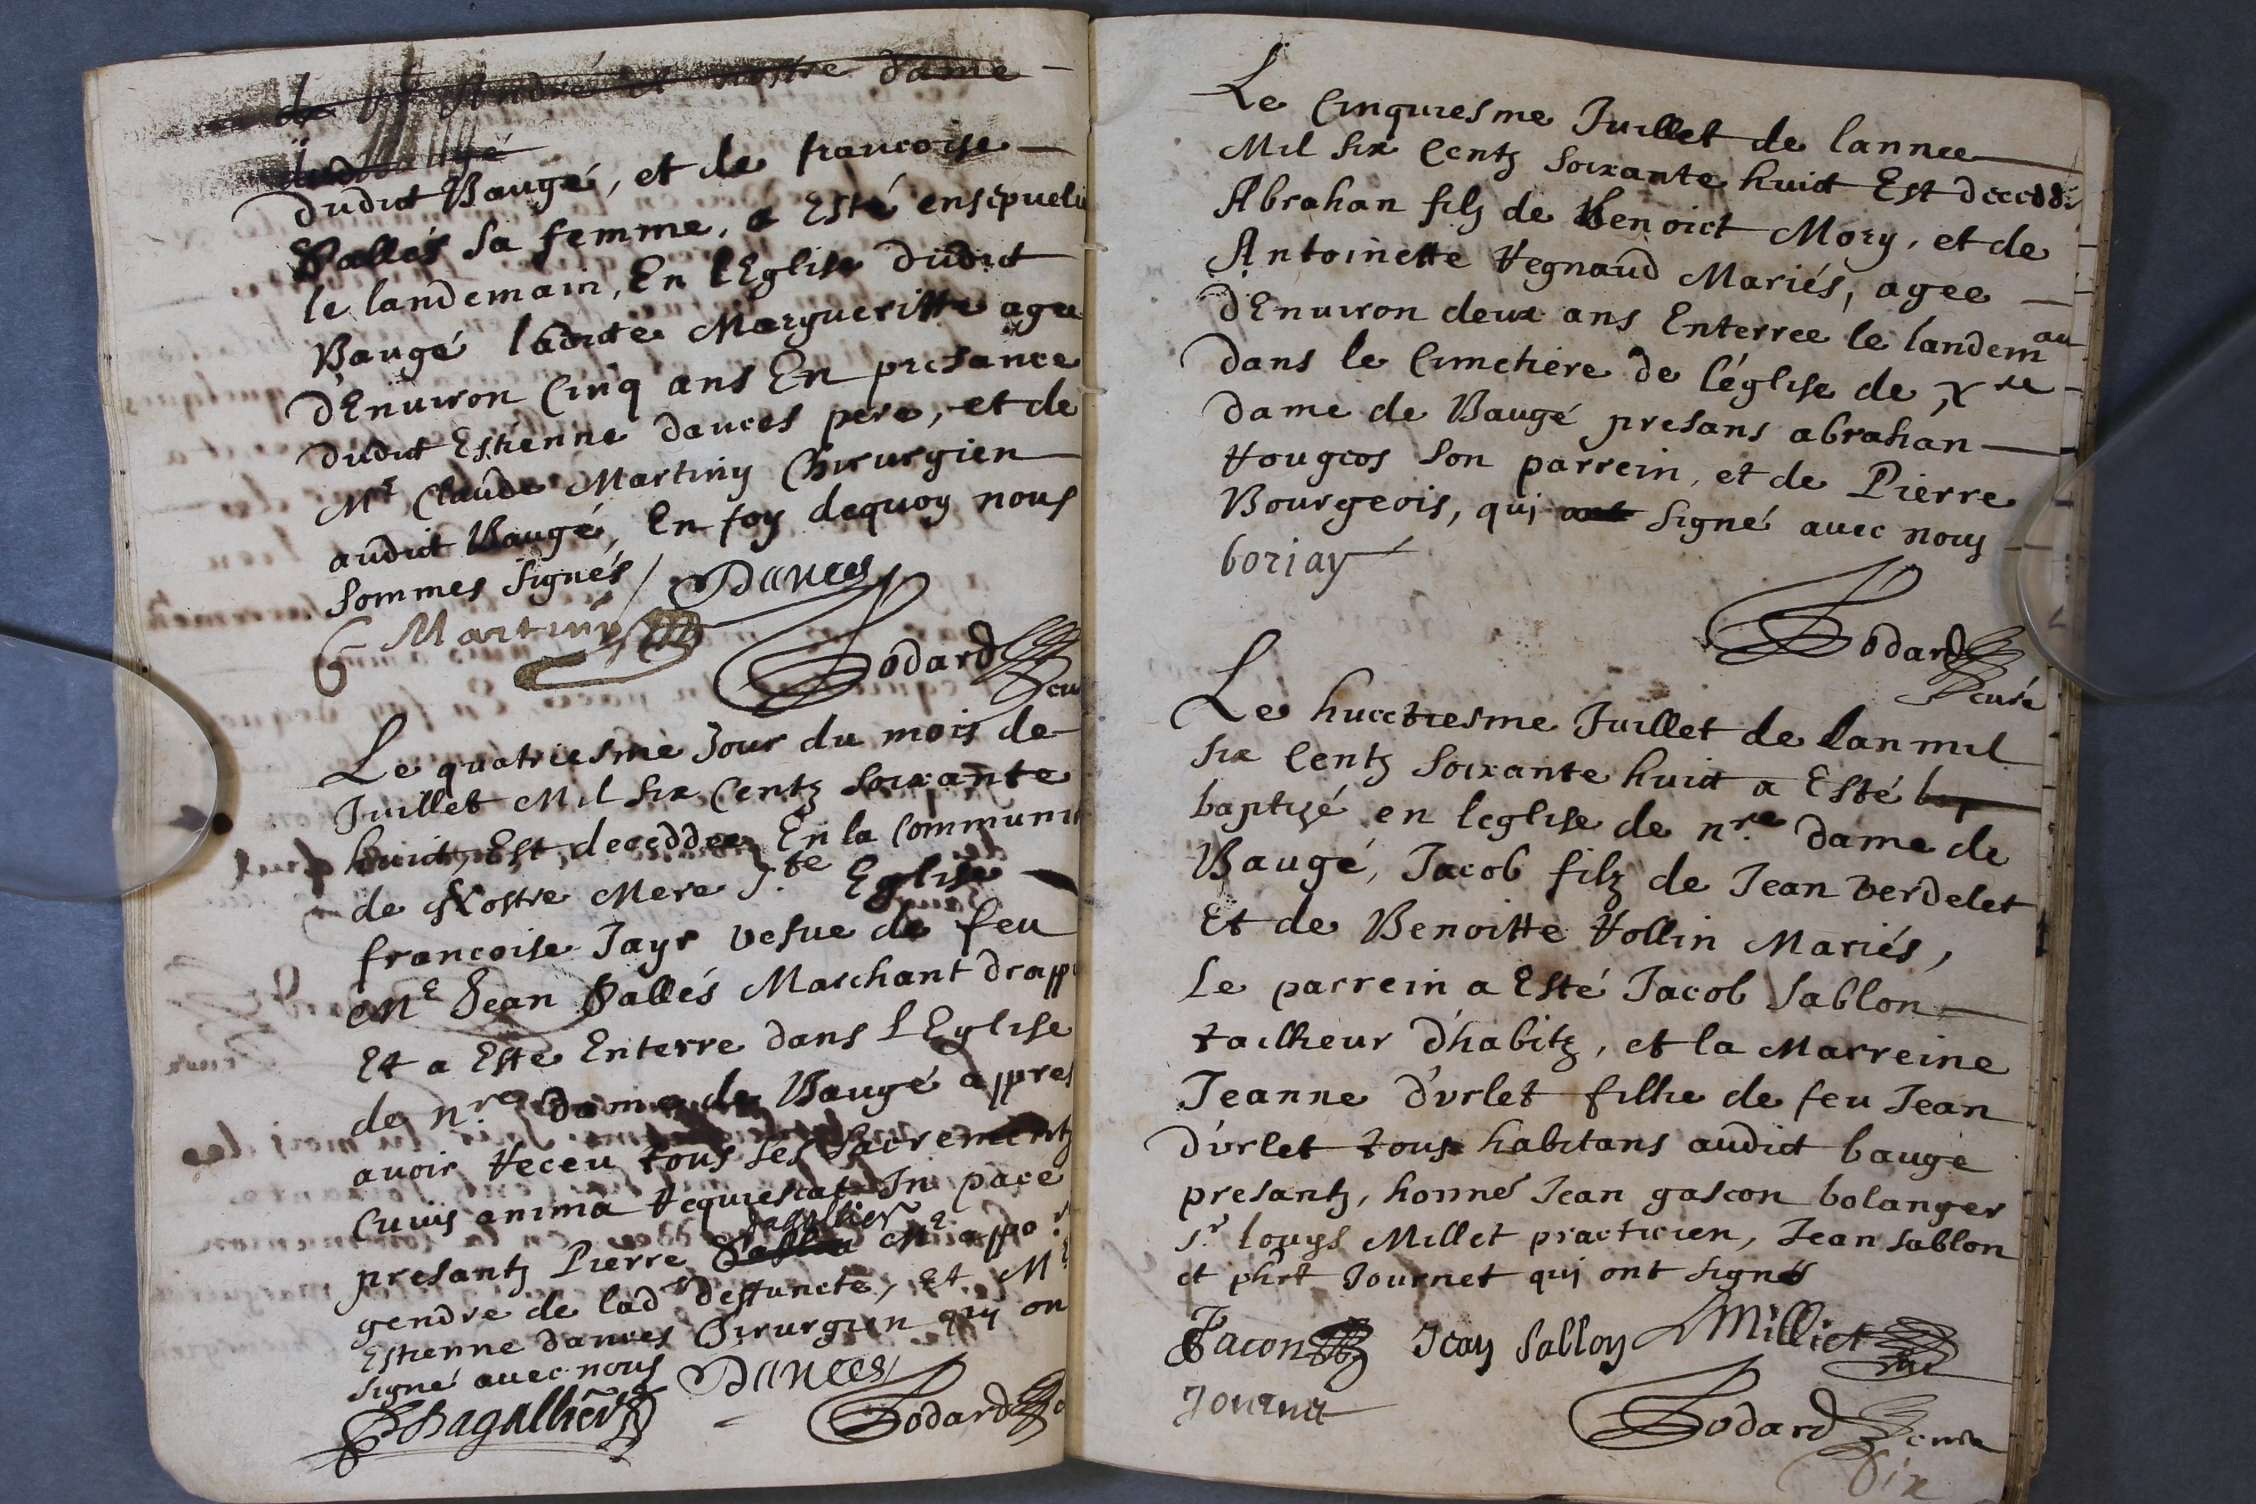 de St André et nostre dame
dudit Baugé
dudict Baugé, et de francoise
Pallés sa femme, a Esté ensepueli
le landemain, En lEglise dudict
Baugé ladicte Margueritte agee
dEnuiron Cinq ans En presance
dudict Estienne dances pere, et de
Mr Claude Martiny Chirurgien
audict Baugé, En foy dequoy nous
sommes signés / Dances
C Martiny
Godard Cu
Le quatriesme Jour du mois de
Juillet Mil six Centz soixante
huict, Est deceddee En la Communi
de Nostre Mere Ste Eglise
francoise Jayr vefue de feu
Me Jean Pallés Marchant drapp
Et a Esté Enterré dans LEglise
de nre Dame de Baugé appres
auoir Receu tous les Sacrementz
Cuius anima Requiescat In pace
Bagallier
presantz Pierre Me appo
gendre de lade deffuncte, Et Me
Estienne dances Chirurgien qui on
signé auec nous Dances
P Bagallier Godard
Le Cinquiesme Juillet de lannee
Mil six Centz soixante huict Est deceddé
Abrahan filz de Benoict Mory, et de
Antoinette Regnaud Mariés, agee
dEnuiron deux ans Enterree le landemain
dans le Cimetiere de léglise de Nre
dame de Baugé presans abrahan
son parrein, et de Pierre
Bourgeois, qui ont signé auec nous
boriay
Godard Curé
Le huictiesme Juillet de Lan mil
six Centz soixante huict a Esté bap
baptizé en leglise de nre dame de
Baugé, Jacob filz de Jean verdelet
Et de Benoitte Rollin Mariés,
Le parrein a Esté Jacob Sablon
tailheur d'habitz, et la Marreine
Jeanne d'vrlet filhe de feu Jean
d'vrlet tous habitans audict baugé
presantz, honné Jean gascon bolanger
sr louys Millet practicien, Jean Sablon
et phrt Journet qui ont signés
Jean Sablon LMilliet
Journet
Godard Curé
Dix